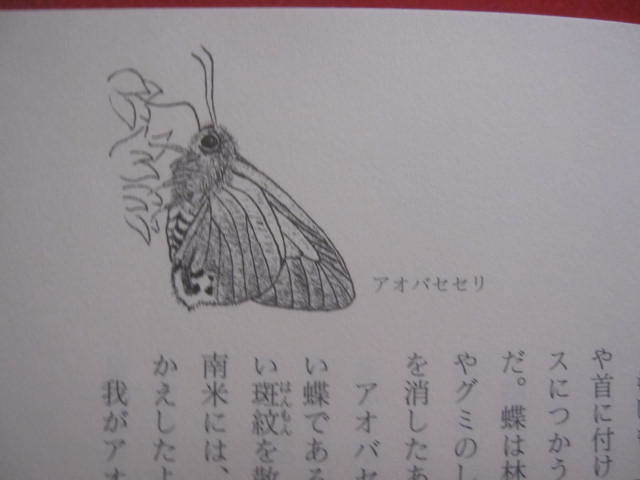 アオバセセリ
や首に付け
スにつかう
だ。蝶は林
やグミのし
を消したあ
アオバセ
い蝶である
い斑紋を散
はんもん
南米には、
かえしたよ
我がアオ